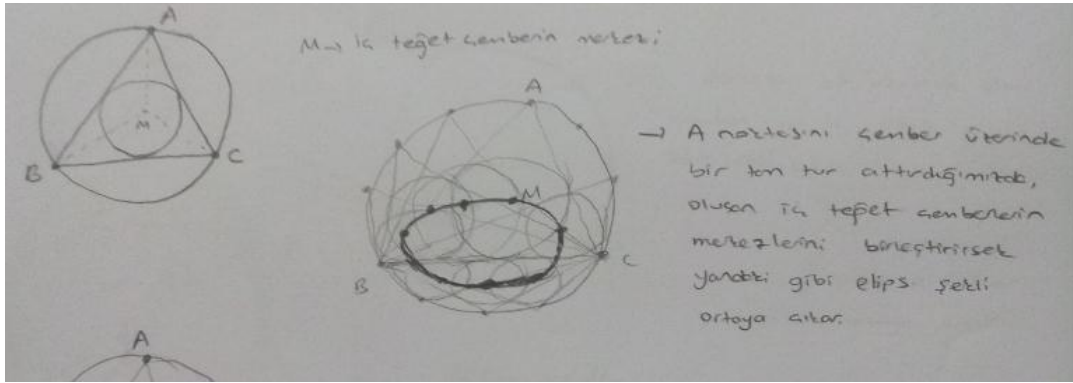 A
M → iç teğet çemberin merkezi
M
B
C
A
M
B
C
→ A noktasını çember üzerinde
bir tam tur attırdığımızda,
oluşan iç teğet çemberlerin
merkezlerini birleştirirsek
yandaki gibi elips şekli
ortaya çıkar.
A